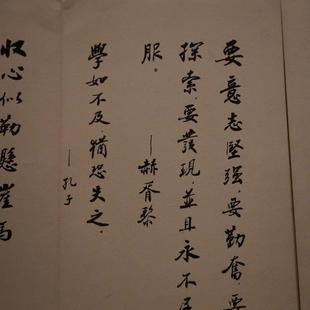 要意志堅強，要勤奮，要
探索，要發現，並且永不屈
服。
——赫胥黎
學如不及，猶恐失之。
——孔子
收心似勒懸崖馬